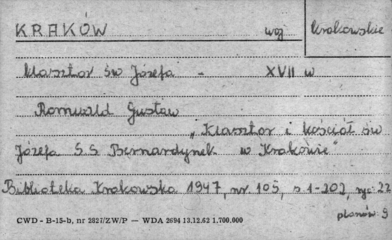 KRAKÓW woj krakowskie
Klasztor św Józefa - XVII w
Romuald Gustaw
„Klasztor i kościół św
Józefa S.S. Bernardynek w Krakowie"
Biblioteka Krakowska 1947, nr. 105, s 1-202, ryc. 22
planów. 9
CWD - B-15-b, nr 2827/ZW/P — WDA 2694 13.12.62 1.700.000